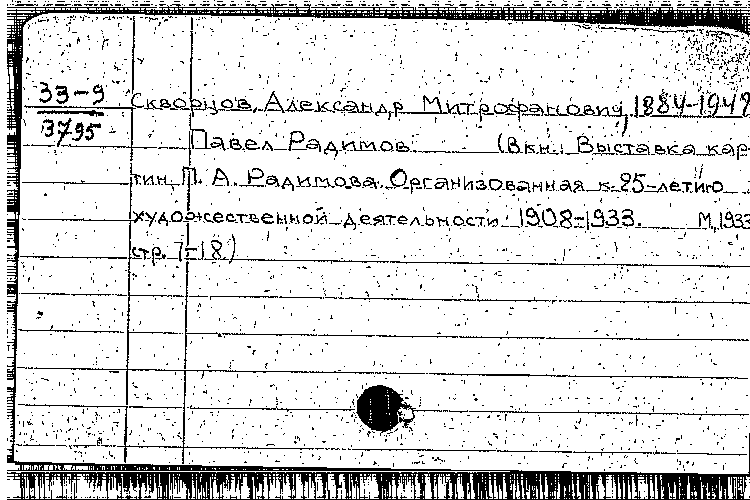 33-9
3795
Скворцов, Александр Митрофанович, 1884-1949
Павел Радимов. (В кн.: Выставка кар-
тин П. А. Радимова. Организованная к 25-летию
художественной деятельности. 1908-1933. М, 1933
стр. 7-18)